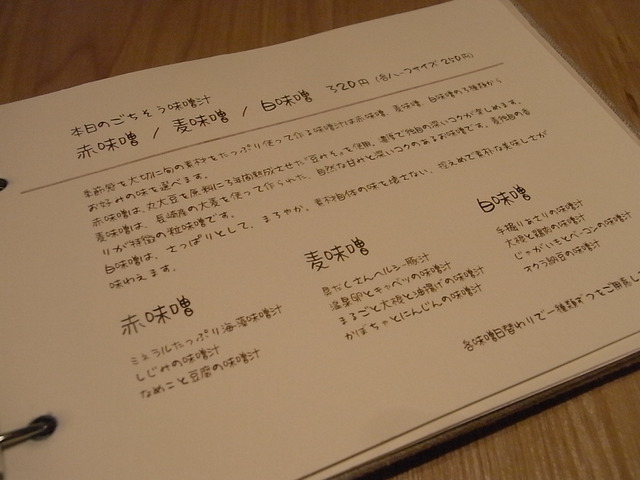 本日のごちそう味噌汁
赤味噌 / 麦味噌 / 白味噌 320円 (各ハーフサイズ 250円)
季節感を大切に旬の素材をたっぷり使って作る味噌汁は赤味噌、麦味噌、白味噌の3種類から
お好みの味を選べます。
赤味噌は、丸大豆を原料に3年間熟成させた"豆みそ"を使用。濃厚で独自の深いコクが楽しめます。
麦味噌は、長崎産の大麦を使って作られた、自然な甘みと深いコクのあるお味噌です。麦独自の香
りが特徴の粒味噌です。
白味噌は、さっぱりとして、まろやか。素材自体の味を壊さない、控えめで素朴な美味しさが
味わえます。
赤味噌
ミネラルたっぷり海藻味噌汁
しじみの味噌汁
なめこと豆腐の味噌汁
麦味噌
具だくさんヘルシー豚汁
温泉卵とキャベツの味噌汁
まるごと大根と油揚げの味噌汁
かぼちゃとにんじんの味噌汁
白味噌
手掘りあさりの味噌汁
大根と鶏肉の味噌汁
じゃがいもとベーコンの味噌汁
オクラ納豆の味噌汁
各味噌日替わりで一種類ずつご用意し